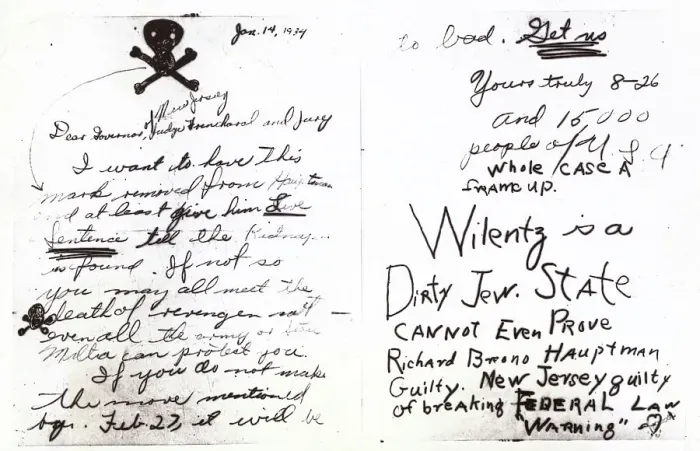 Jan. 14, 1934
of New Jersey
Dear Governor, Judge Trencharal and Jury
I want to have This
mark removed from Hauptman
and at least give him Live
Sentence till the Kidnap...
is found. If not so
you may all meet the
death of revenge
even all the army or State
Militia can protect you.
If you do not make
the move mentioned
by. Feb. 27, it will be
to bad. Get us
Yours truly 8-26
and 15000
people of U.S.A.
Whole CASE A
FRAME UP.
Wilentz is a
Dirty Jew. STATE
CANNOT Even PROVE
Richard Bruno HAUPTMAN
Guilty. New Jersey guilty
of breaking FEDERAL LAW
"WARNING"